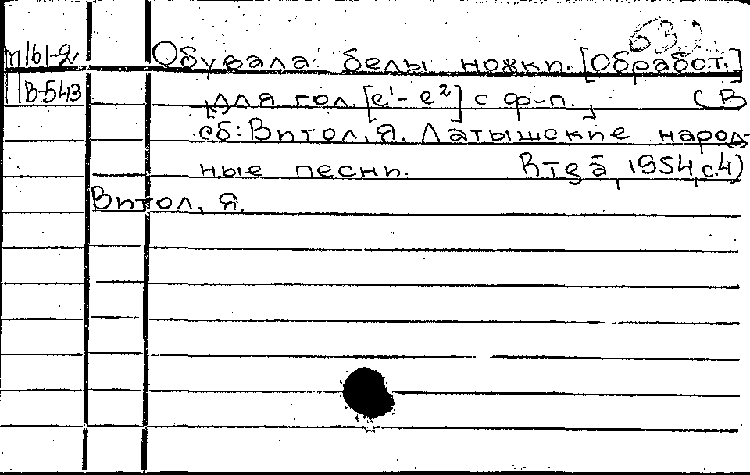 632
П/61-2 Обувала белы ножки. [Обработ.]
В-543 для гол. [e¹-e²] с ф-п. (В
сб: Витол, Я. Латышские народ
ные песни. Rīgā, 1954, с.4)
Витол, Я.